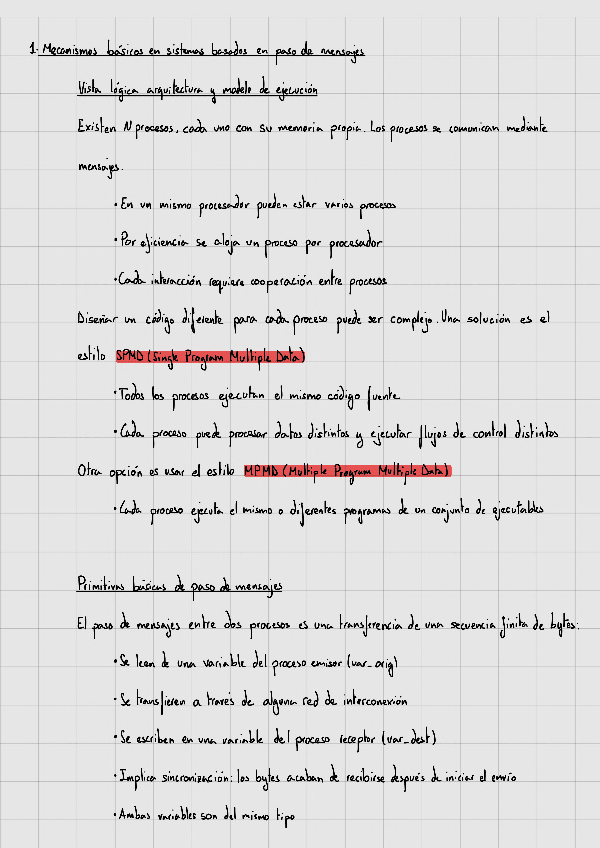 1. Mecanismos básicos en sistemas basados en paso de mensajes
Vista lógica arquitectura y modelo de ejecución
Existen N procesos, cada uno con su memoria propia. Los procesos se comunican mediante
mensajes.
· En un mismo procesador pueden estar varios procesos
· Por eficiencia se aloja un proceso por procesador
· Cada interacción requiere cooperación entre procesos
Diseñar un código diferente para cada proceso puede ser complejo. Una solución es el
estilo SPMD (Single Program Multiple Data)
· Todos los procesos ejecutan el mismo código fuente
· Cada proceso puede procesar datos distintos y ejecutar flujos de control distintos
Otra opción es usar el estilo MPMD (Multiple Program Multiple Data)
· Cada proceso ejecuta el mismo o diferentes programas de un conjunto de ejecutables
Primitivas básicas de paso de mensajes
El paso de mensajes entre dos procesos es una transferencia de una secuencia finita de bytes:
· Se leen de una variable del proceso emisor (var_orig)
· Se transfieren a través de alguna red de interconexión
· Se escriben en una variable del proceso receptor (var_dest)
· Implica sincronización: los bytes acaban de recibirse después de iniciar el envío
· Ambas variables son del mismo tipo